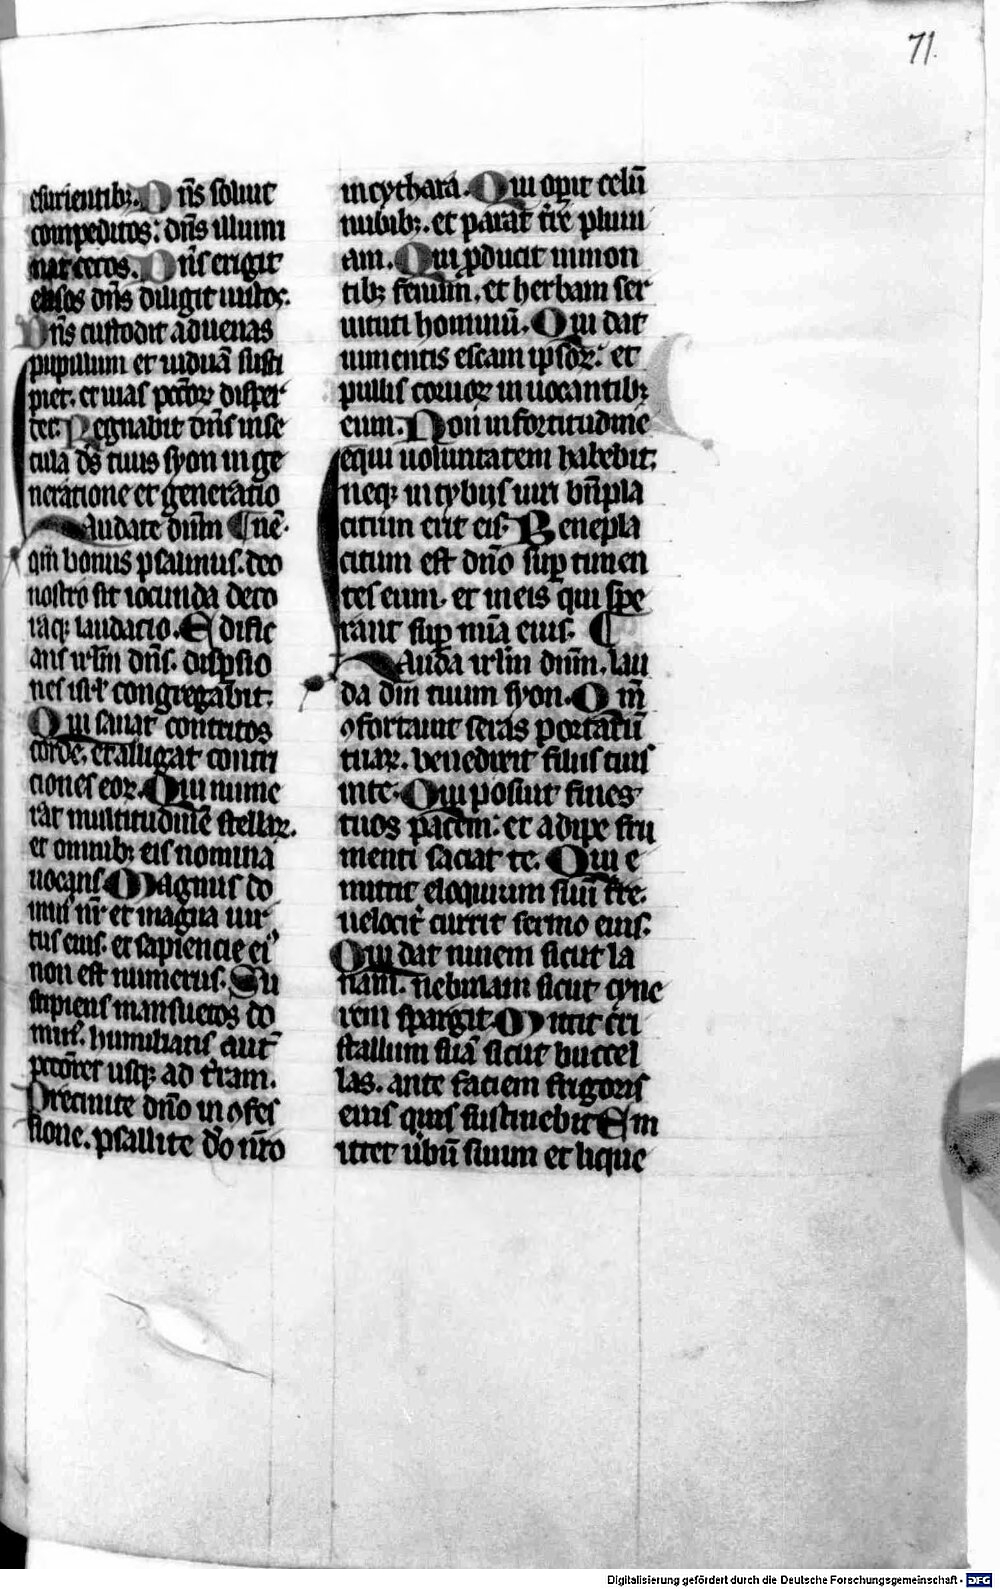 71.
esurientibꝫ. Dn̄s soluit
compeditos: dn̄s illumi
nat cecos. Dn̄s erigit
elisos dn̄s diligit iustos.
Dn̄s custodit aduenas
pupillum et uiduā susci
piet. et uias pctōꝝ disper
det. Regnabit dn̄s in se
cula dē tuus syon in ge
neratione et generatio
Laudate dnm̄ ne.
qm̄ bonus psalmus. deo
nostro sit iocunda deco
raqꝫ laudatio. Edific
ans irlm̄ dn̄s. dispsio
nes isrl̄ congregabit.
Qui sanat contritos
corde. et alligat contri
ciones eoꝝ. Qui nume
rat multitudinē stellaꝝ.
et omnibꝫ eis nomina
uocans. Magnus do
min᾿ nr̄ et magna uir
tus eius. et sapiencie ei᾿
non est numerus. Su
scipiens mansuetos do
min᾿. humilians aut̄
pccōres usqꝫ ad tr̄ram.
Precinite dn̄o in ꝯfes
sione. psallite dō nr̄o
in cythara. Qui opit celū
nubibꝫ. et parat tr̄e pluui
am. Qui ꝓducit in mon
tibꝫ fenum. et herbam ser
uituti hominū. Qui dat
iumentis escam ipsoꝝ: et
pullis coruoꝝ inuocantibꝫ
eum. Non in fortitudine
equi uoluntatem habebit:
neqꝫ in tybijs uiri bn̄pla
citum erit ei. Benepla
citum est dn̄o suꝑ timen
tes eum. et in eis qui spe
rant suꝑ mīa eius.
Lauda irlm̄ dnm̄. lau
da dm̄ tuum syon. Qm̄
ꝯfortauit seras portarū
tuaꝝ. benedixit filiis tuis
in te. Qui posuit fines
tuos pacem: et adipe fru
menti saciat te. Qui e
mittit eloquium suū tr̄e.
uelociť currit sermo eius.
Qui dat niuem sicut la
nam. nebulam sicut cyne
rem spargit. Mittit cri
stallum suā sicut buccel
las. ante faciem frigoris
eius quis sustinebit Em
ittet ūbū suum et lique
Digitalisierung gefördert durch die Deutsche Forschungsgemeinschaft - DFG